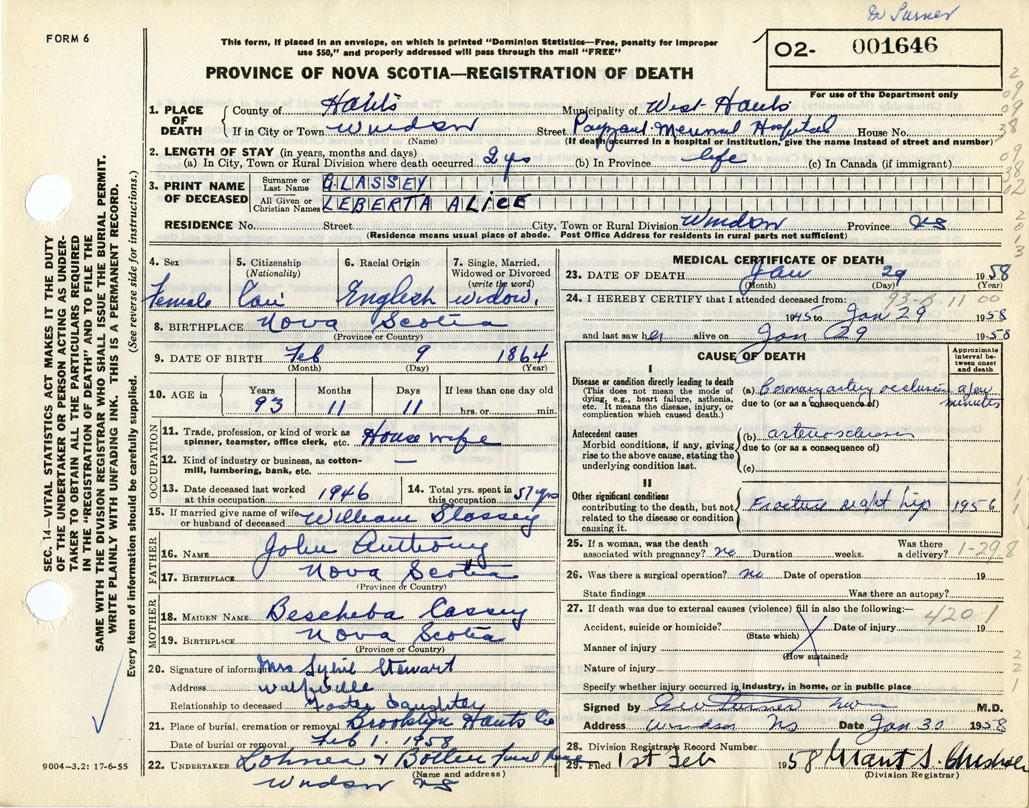 Dr Turner
FORM 6
This form, if placed in an envelope, on which is printed "Dominion Statistics—Free, penalty for improper
use $50," and properly addressed will pass through the mail "FREE"
O2- 001646
For use of the Department only
PROVINCE OF NOVA SCOTIA—REGISTRATION OF DEATH
1. PLACE OF DEATH
County of Hants Municipality of West Hants
If in City or Town Windsor Street Payzant Memorial Hospital House No.
(Name) (If death occurred in a hospital or institution, give the name instead of street and number)
2. LENGTH OF STAY (in years, months and days)
(a) In City, Town or Rural Division where death occurred 2 yrs (b) In Province life (c) In Canada (if immigrant)
3. PRINT NAME OF DECEASED
Surname or Last Name GLASSEY
All Given or Christian Names LEBERTA ALICE
RESIDENCE No. Street City, Town or Rural Division Windsor Province NS
(Residence means usual place of abode. Post Office Address for residents in rural parts not sufficient)
4. Sex Female
5. Citizenship (Nationality) Can
6. Racial Origin English
7. Single, Married, Widowed or Divorced (write the word) widow.
8. BIRTHPLACE Nova Scotia
(Province or Country)
9. DATE OF BIRTH Feb 9 1864
(Month) (Day) (Year)
10. AGE in Years 93 Months 11 Days 11 If less than one day hrs. or min.
OCCUPATION
11. Trade, profession, or kind of work as spinner, teamster, office clerk, etc. House wife
12. Kind of industry or business, as cotton-mill, lumbering, bank, etc. —
13. Date deceased last worked at this occupation 1946
14. Total yrs. spent in this occupation 57 yrs
15. If married give name of wife or husband of deceased William Glassey
FATHER
16. NAME John Anthony
17. BIRTHPLACE Nova Scotia
(Province or Country)
MOTHER
18. MAIDEN NAME Bescheba Cassey
19. BIRTHPLACE Nova Scotia
(Province or Country)
20. Signature of informant Mrs Sybil Stewart
Address Wolfville
Relationship to deceased Foster daughter
21. Place of burial, cremation or removal Brooklyn Hants Co
Date of burial or removal Feb 1. 1958
22. UNDERTAKER Lohnes & Funeral
(Name and address)
Windsor NS
MEDICAL CERTIFICATE OF DEATH
23. DATE OF DEATH Jan 29 1958
(Month) (Day) (Year)
24. I HEREBY CERTIFY that I attended deceased from: 93-8-11-00
1945 to Jan 29 1958
and last saw her alive on Jan 29 1958
CAUSE OF DEATH
Approximate interval between onset and death
I
Disease or condition directly leading to death
(This does not mean the mode of dying, e.g., heart failure, asthenia, etc. It means the disease, injury, or complication which caused death.)
(a) Coronary artery occlusion a few minutes
due to (or as a consequence of)
Antecedent causes
Morbid conditions, if any, giving rise to the above cause, stating the underlying condition last.
(b) arteriosclerosis
due to (or as a consequence of)
(c)
II
Other significant conditions
contributing to the death, but not related to the disease or condition causing it.
Fracture right hip 1956
25. If a woman, was the death associated with pregnancy? no Duration weeks. Was there a delivery? 1-298
26. Was there a surgical operation? no Date of operation 19
State findings Was there an autopsy?
27. If death was due to external causes (violence) fill in also the following:— 420-1
Accident, suicide or homicide? Date of injury 19
(State which)
Manner of injury
(How sustained)
Nature of injury
Specify whether injury occurred in industry, in home, or in public place
Signed by Turner M.D.
Address Windsor NS Date Jan 30 1958
28. Division Registrar's Record Number
29. Filed 1st Feb 1958 Grant S.
(Division Registrar)
9004-3.2: 17-6-55
SEC. 14—VITAL STATISTICS ACT MAKES IT THE DUTY
OF THE UNDERTAKER OR PERSON ACTING AS UNDER-
TAKER TO OBTAIN ALL THE PARTICULARS REQUIRED
IN THE "REGISTRATION OF DEATH" AND TO FILE THE
SAME WITH THE DIVISION REGISTRAR WHO SHALL ISSUE THE BURIAL PERMIT.
WRITE PLAINLY WITH UNFADING INK. THIS IS A PERMANENT RECORD.
Every item of information should be carefully supplied. (See reverse side for instructions.)